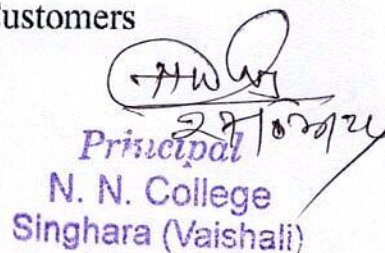 Customers
Principal
N. N. College
Singhara (Vaishali)